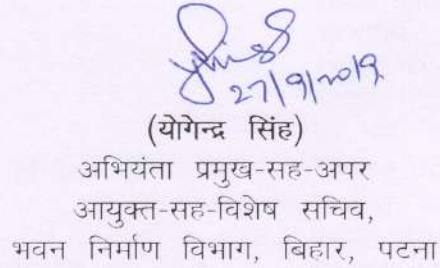 27/9/2019
(योगेन्द्र सिंह)
अभियंता प्रमुख-सह-अपर
आयुक्त-सह-विशेष सचिव,
भवन निर्माण विभाग, बिहार, पटना